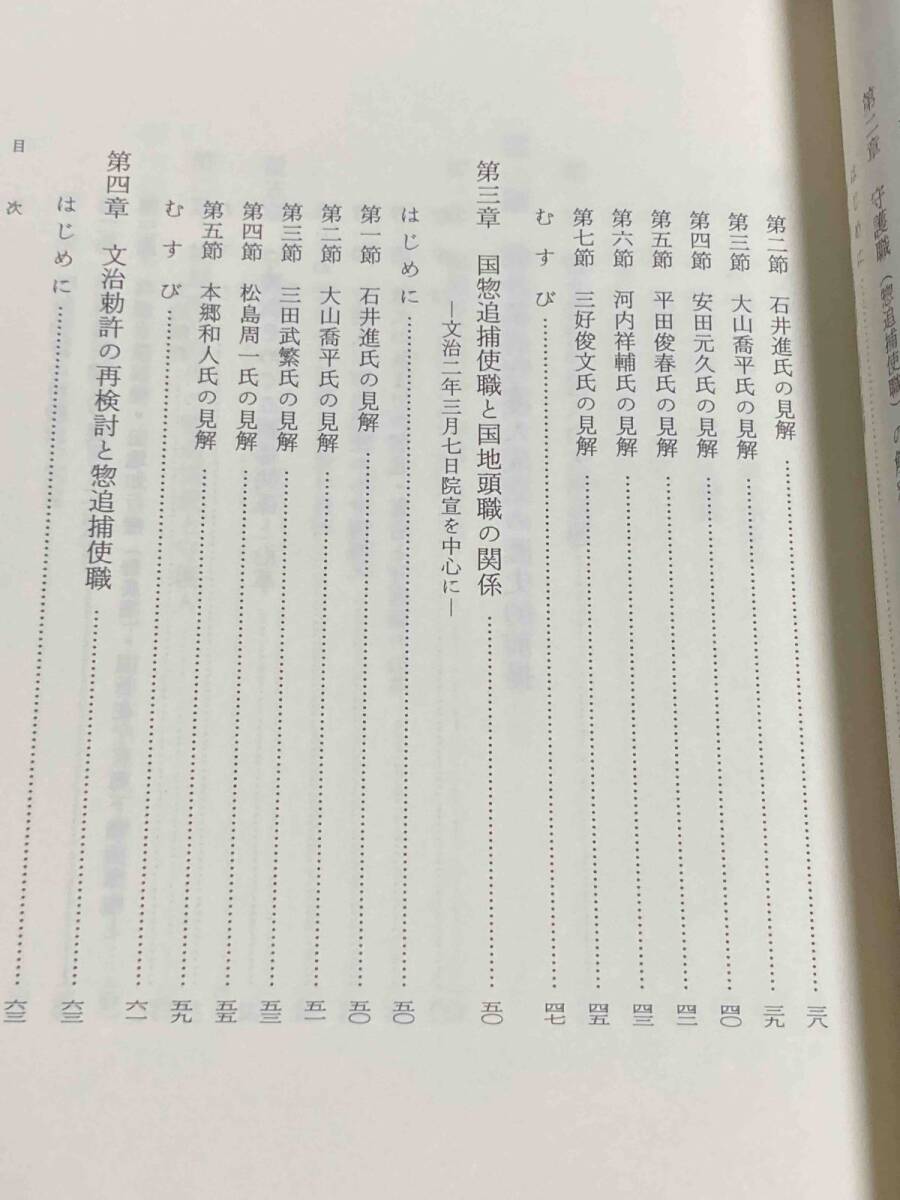 第二章　守護職（惣追捕使職）の
はじめに
第二節　石井進氏の見解……三八
第三節　大山喬平氏の見解……三九
第四節　安田元久氏の見解……四〇
第五節　平田俊春氏の見解……四二
第六節　河内祥輔氏の見解……四三
第七節　三好俊文氏の見解……四五
むすび……四七
第三章　国惣追捕使職と国地頭職の関係……五〇
―文治二年三月七日院宣を中心に―
はじめに……五〇
第一節　石井進氏の見解……五〇
第二節　大山喬平氏の見解……五一
第三節　三田武繁氏の見解……五三
第四節　松島周一氏の見解……五五
第五節　本郷和人氏の見解……五九
むすび……六一
第四章　文治勅許の再検討と惣追捕使職……六三
はじめに……六三
目次